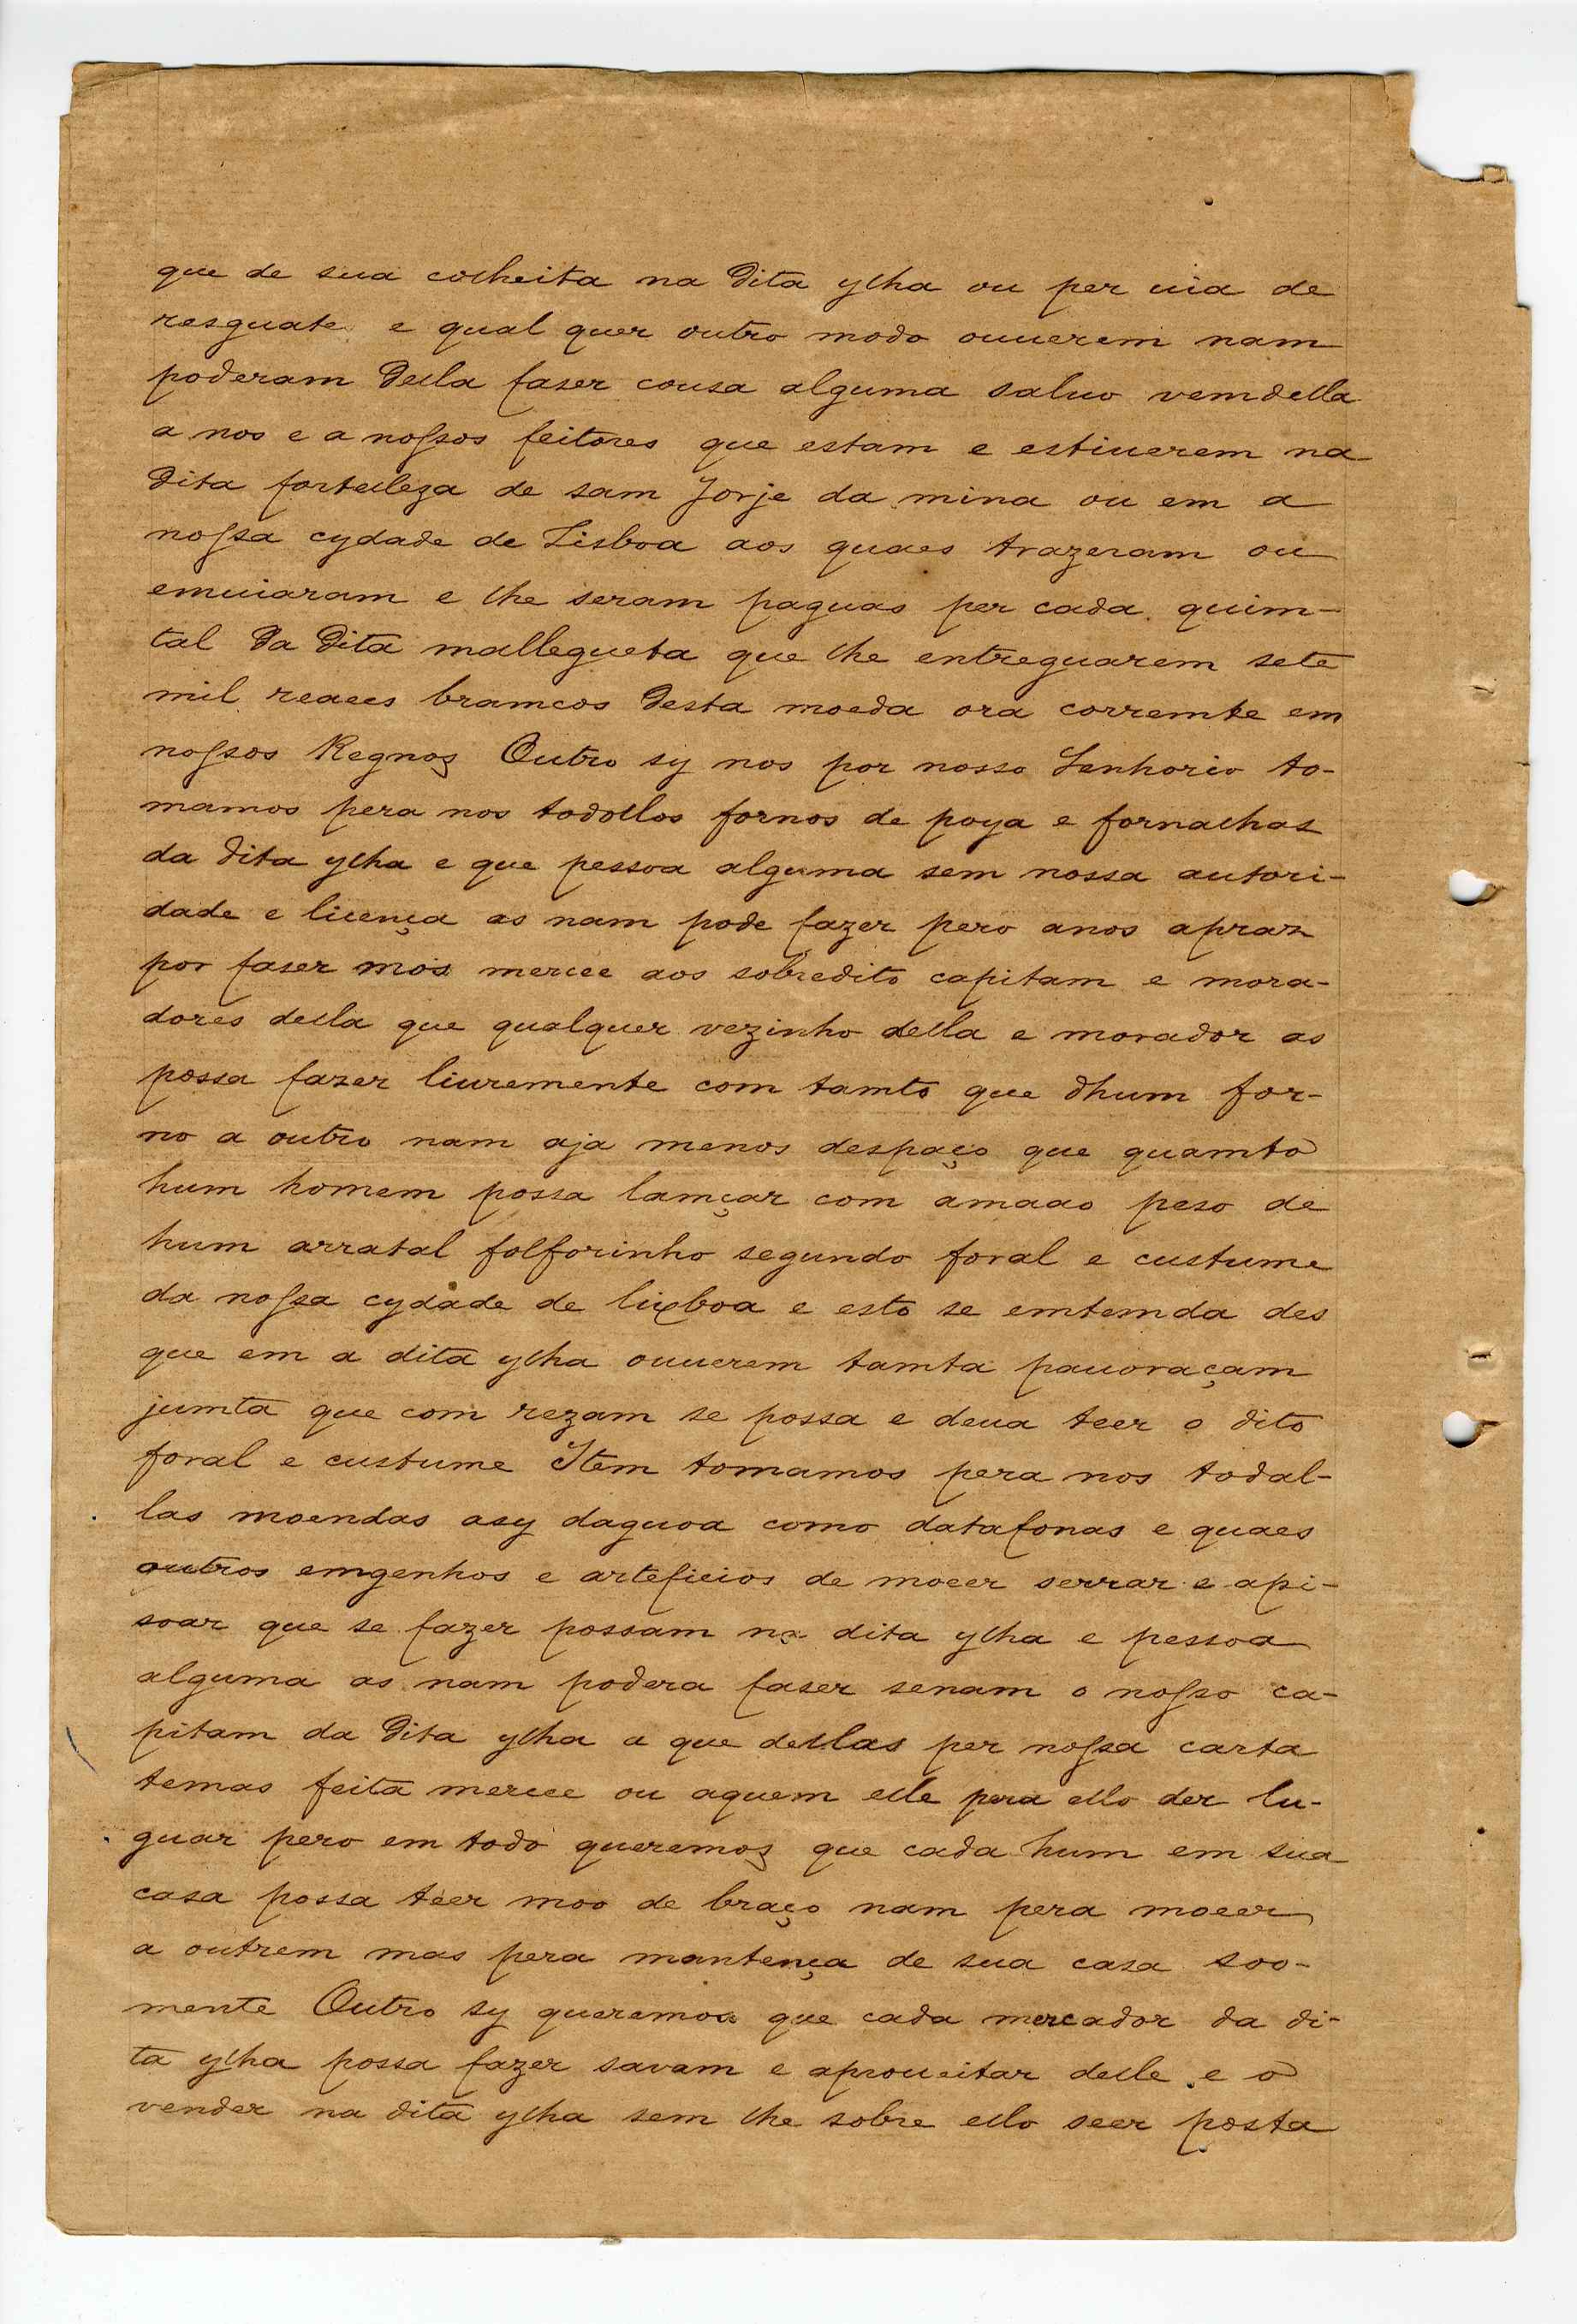 que de sua colheita na dita ylha ou per uia de
resguate e qual quer outro modo ouuerem nam
poderam della faser cousa alguma saluo vemdella
a nos e a nossos feitores que estam e estiuerem na
dita fortelleza de sam Jorje da mina ou em a
nossa cydade de Lisboa aos quaes trazeram ou
emuiaram e lhe seram paguas per cada quim-
tal da dita mallegueta que lhe entreguarem sete
mil reaees bramcos desta moeda ora corremte em
nossos Regnos Outro sy nos por nosso Senhorio to-
mamos pera nos todollos fornos de poya e fornalhas
da dita ylha e que pessoa alguma sem nossa autori-
dade e licença as nam pode fazer pero anos apraz
por faser mos mercee aos sobredito capitam e mora-
dores della que qualquer vezinho della e morador as
possa fazer liuremente com tamto que dhum for-
no a outro nam aja menos despaço que quamto
hum homem possa lamçar com amaao peso de
hum arratal folforinho segundo foral e custume
da nossa cydade de lixboa e esto se emtemda des
que em a dita ylha ouuerem tamta pauoraçam
jumta que com rezam se possa e deua teer o dito
foral e custume Item tomamos pera nos todal-
las moendas asy daguoa como datafonas e quaes
outros emgenhos e arteficios de moeer serrar e api-
soar que se fazer possam na dita ylha e pessoa
alguma as nam podera faser senam o nosso ca-
pitam da dita ylha a que dellas per nossa carta
temas feita mercee ou aquem elle pera ello der lu-
guar pero em todo queremos que cada hum em sua
casa possa teer moo de braço nam pera moeer
a outrem mas pera mantença de sua casa soo-
mente Outro sy queremos que cada mercador da di-
ta ylha possa fazer savam e aproueitar delle e o
vender na dita ylha sem lhe sobre ello seer posta